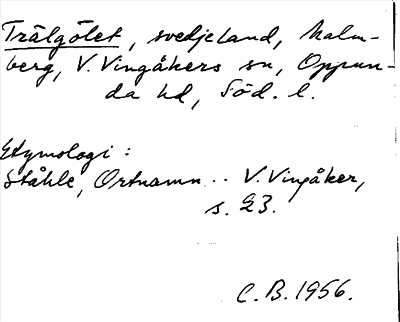 Trälgölet, svedjeland, Malm-
berg, V. Vingåkers sn, Oppun-
da hd, Söd. l.
Etymologi:
Ståhle, Ortnamn... V. Vingåker,
s. 23.
C.B. 1956.